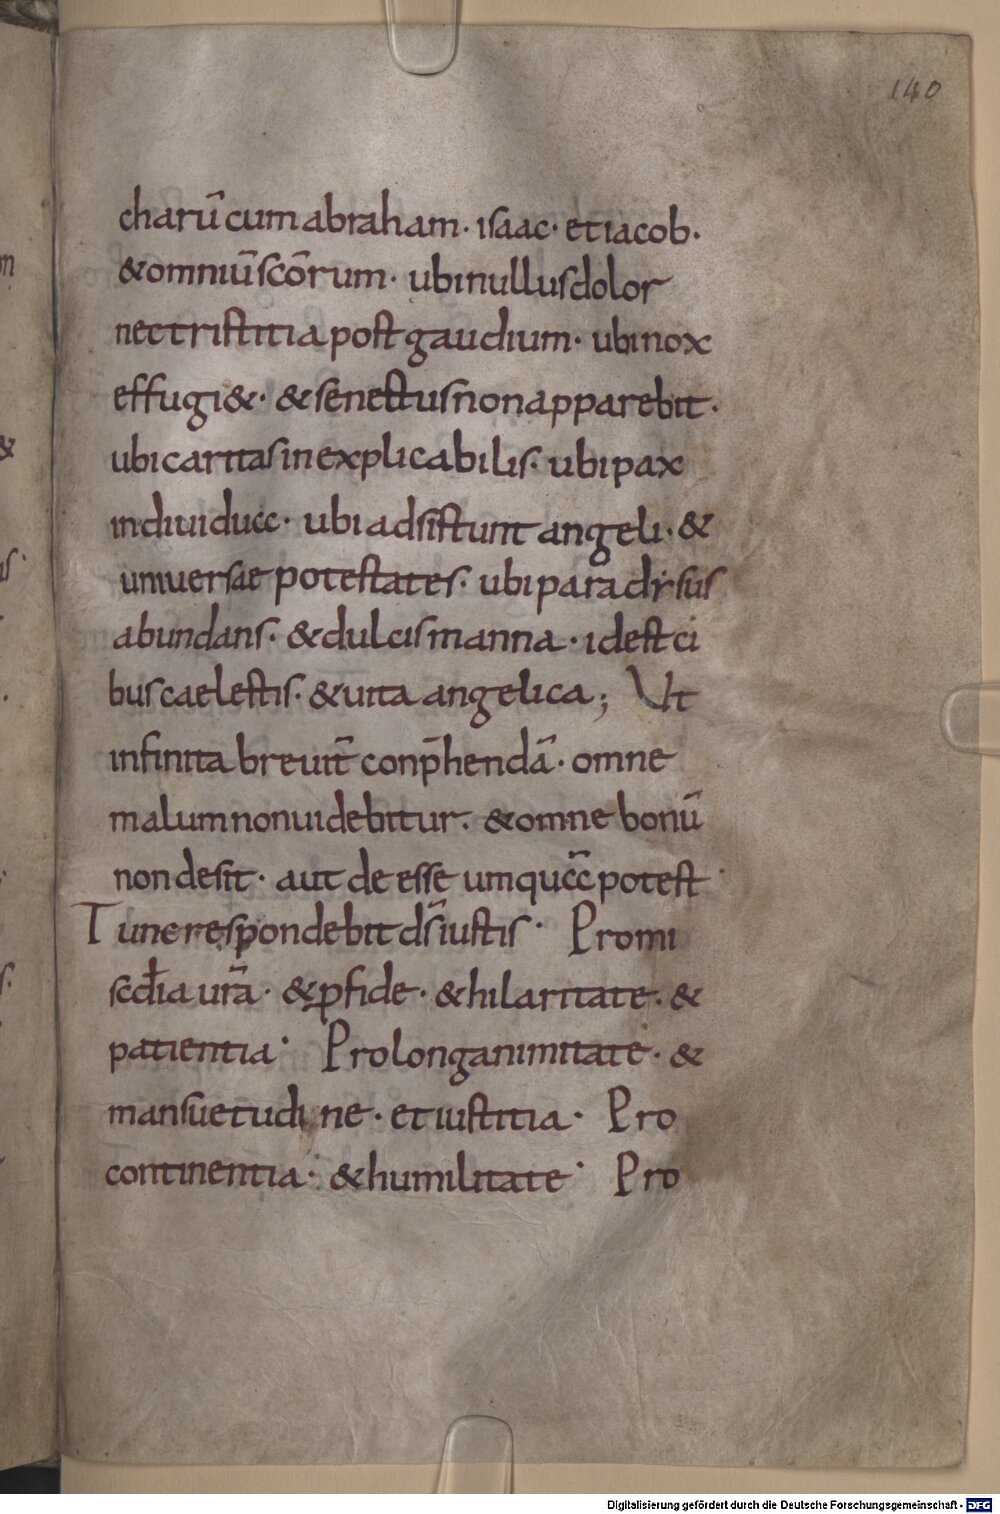 140
charū cum abraham· isaac· et iacob·
& omniū scōrum· ubi nullus dolor
nec tristitia post gaudium· ubi nox
effugi&· & senectus non apparebit·
ubi caritas inexplicabilis· ubi pax
indiuiducc· ubi adsistunt angeli· &
uniuersae potestates· ubi paradysus
abundans· & dulcis manna· id est ci
bus caelestis· & uita angelica; Ut
infinita breuit̄ conp̄hendā· omne
malum non uidebitur· & omne bonū
non desit· aut deesse umquā potest
Tunc respondebit dš iustis· Pro mi
sedia urā· & ꝑfide· & hilaritate· &
patientia· Pro longanimitate· &
mansuetudine· et iustitia· Pro
continentia· & humilitate· Pro
Digitalisierung gefördert durch die Deutsche Forschungsgemeinschaft - DFG